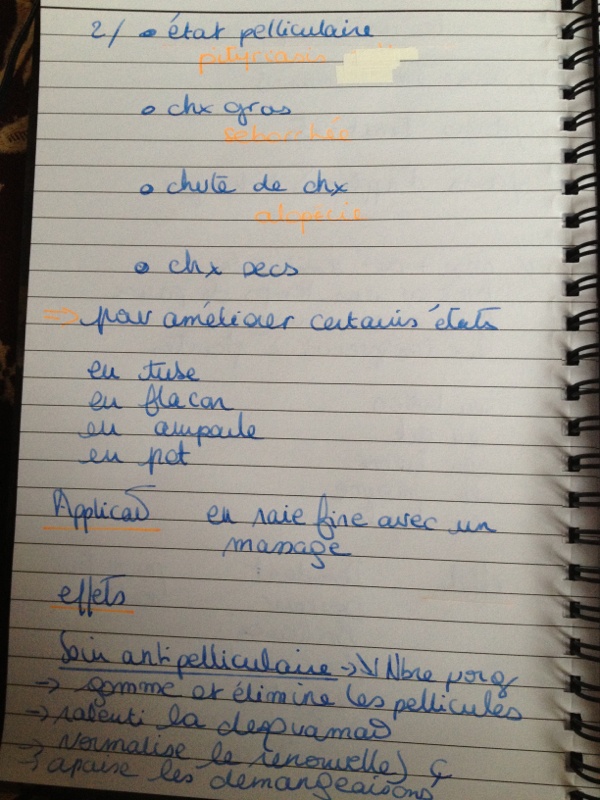 2/ • état pelliculaire
pityriasis
• chx gras
seborrhée
• chute de chx
alopécie
• chx secs
=> pour améliorer certains états
en tube
en flacon
en ampoule
en pot
Applicat° en raie fine avec un
massage
effets
Soin antipelliculaire -> ↓ Nbre
-> gomme et élimine les pellicules
-> ralenti la desquamat°
-> Normalise le renouvellet
-> apaise les démangeaisons